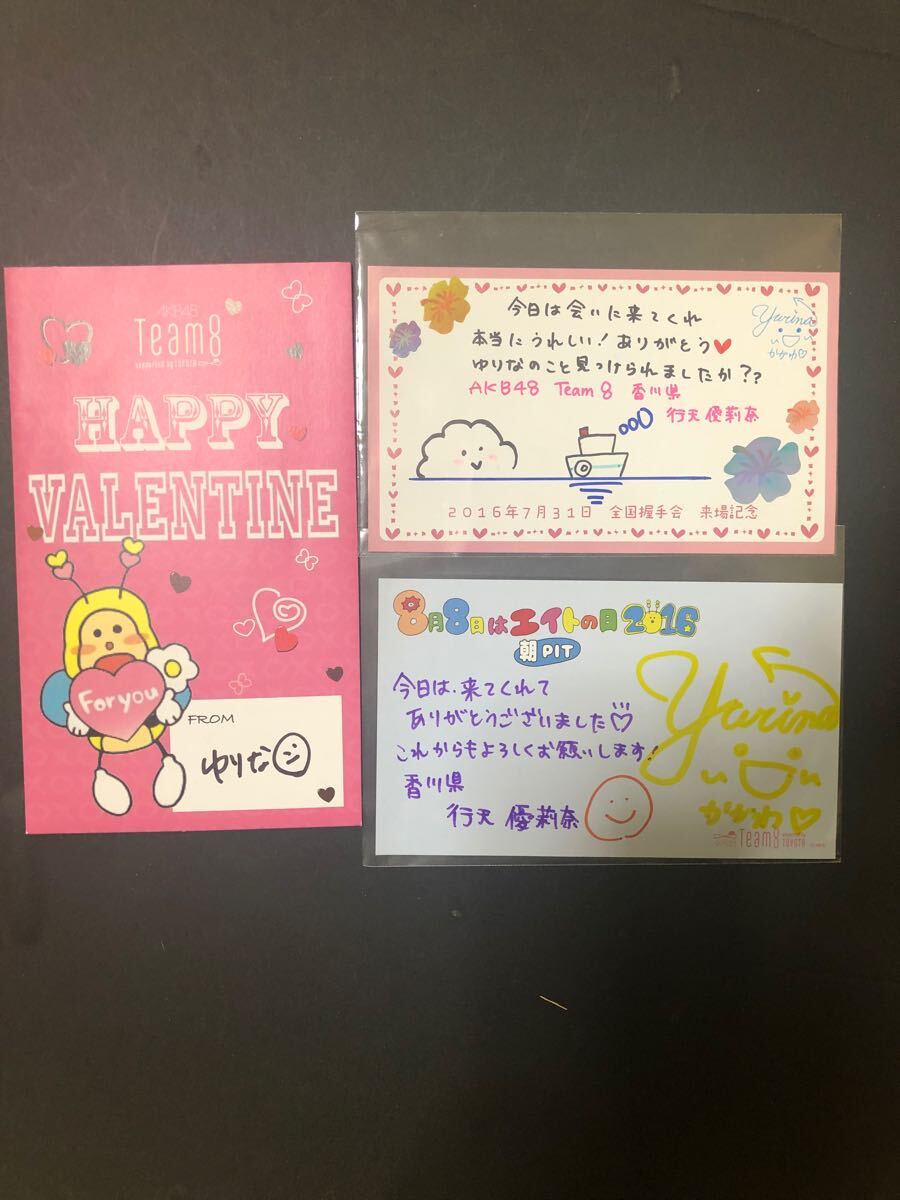 AKB48
Team8
supported by TOYOTA
HAPPY
VALENTINE
For you
FROM
ゆりな
今日は会いに来てくれ
本当にうれしい！ありがとう♥
ゆりなのこと見つけられましたか??
AKB48 Team 8 香川県
行天優莉奈
Yurina
かがわ♡
2016年7月31日 全国握手会 来場記念
8月8日はエイトの日2016
朝PIT
今日は、来てくれて
ありがとうございました♡
これからもよろしくお願いします！
香川県
行天 優莉奈
Yurina
かがわ♡
Team8
TOYOTA